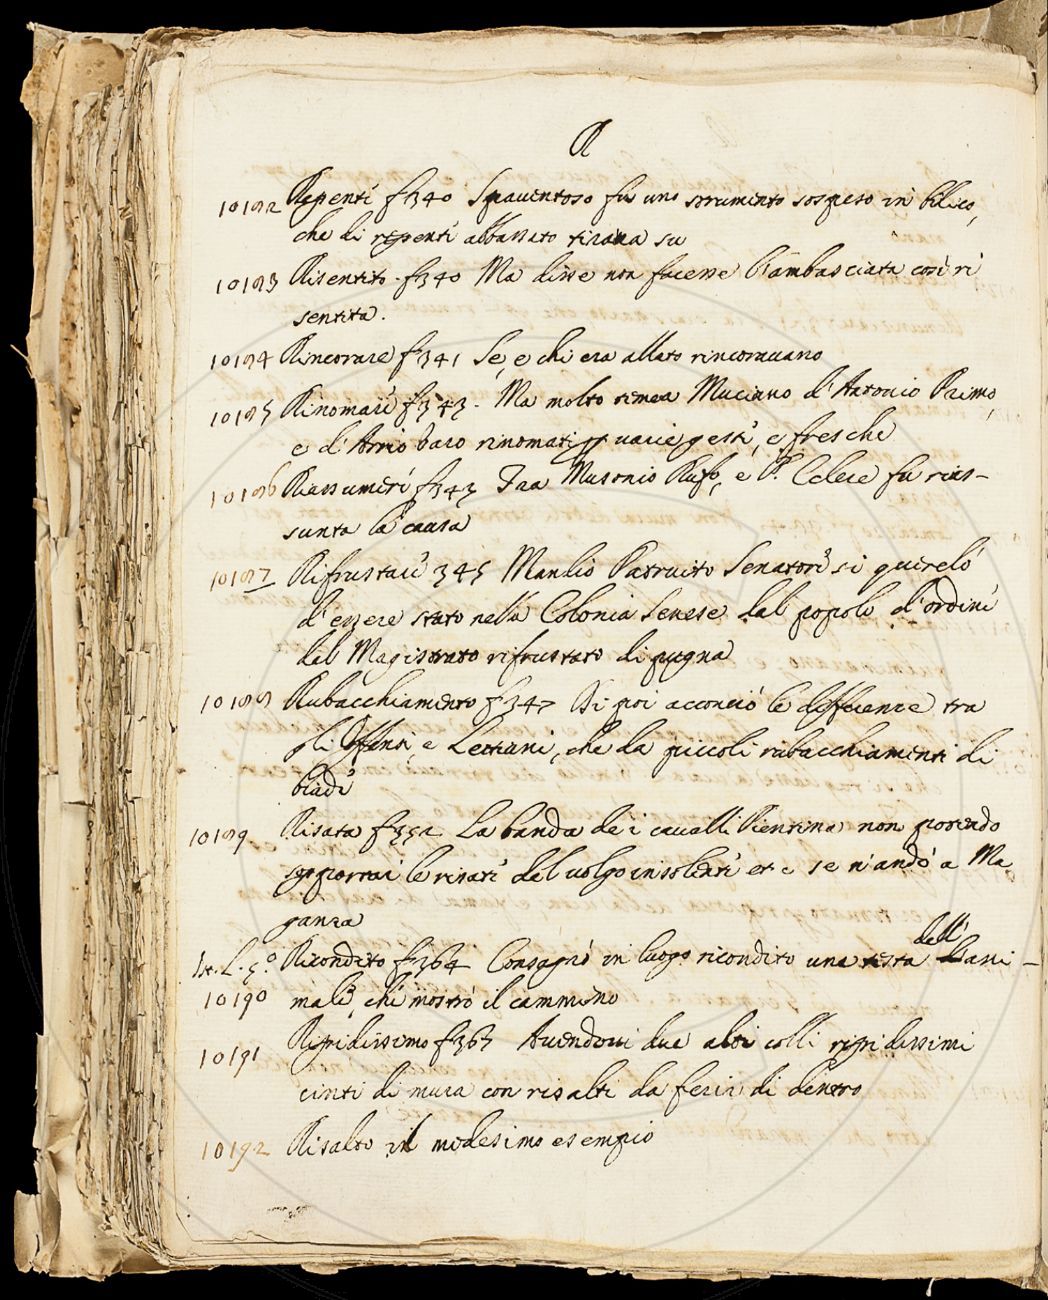 R
10182 Repenti f. 340 Spaventoso fu uno strumento sospeso in bilico,
che di repenti abbassato tirava su
10183 Risentito f. 340 Ma disse non facesse l'ambasciata così ri
sentita.
10184 Rincorare f. 341 Se, e chi era allato rincoravano
10185 Rinomare f. 343. Ma molto temea Muciano d'Antonio Primo,
e d'Arrio Varo rinomati p varie gesti, e fresche
10186 Riassumere f. 343 Tra Musonio Rufo, e P. Celere fu rias-
sunta la causa
10187 Rifrustare 345 Manlio Patruito Senatore si querelò
d'essere stato nella Colonia Senese dal popolo d'ordine
del Magistrato rifrustato di pugna
10188 Rubacchiamento f. 347 Di poi acconciò le differenze tra
gli Offensi, e Lettani, che da piccoli rubacchiamenti di
biade
10189 Risata f. 352 La banda de i cavalli Pientina non potendo
sopportar le risate del volgo insolente et c se n'andò a Ma
ganza
St. L. 5.º Ricondito f. 364 Consagrò in luogo ricondito una testa dell' ani-
10190 male, che mostrò il cammino
10191 Rigidissimo f. 365 Avendovi due alti colli rigidissimi
cinti di mura con risalti da ferir di dentro
10192 Risalto il medesimo esempio